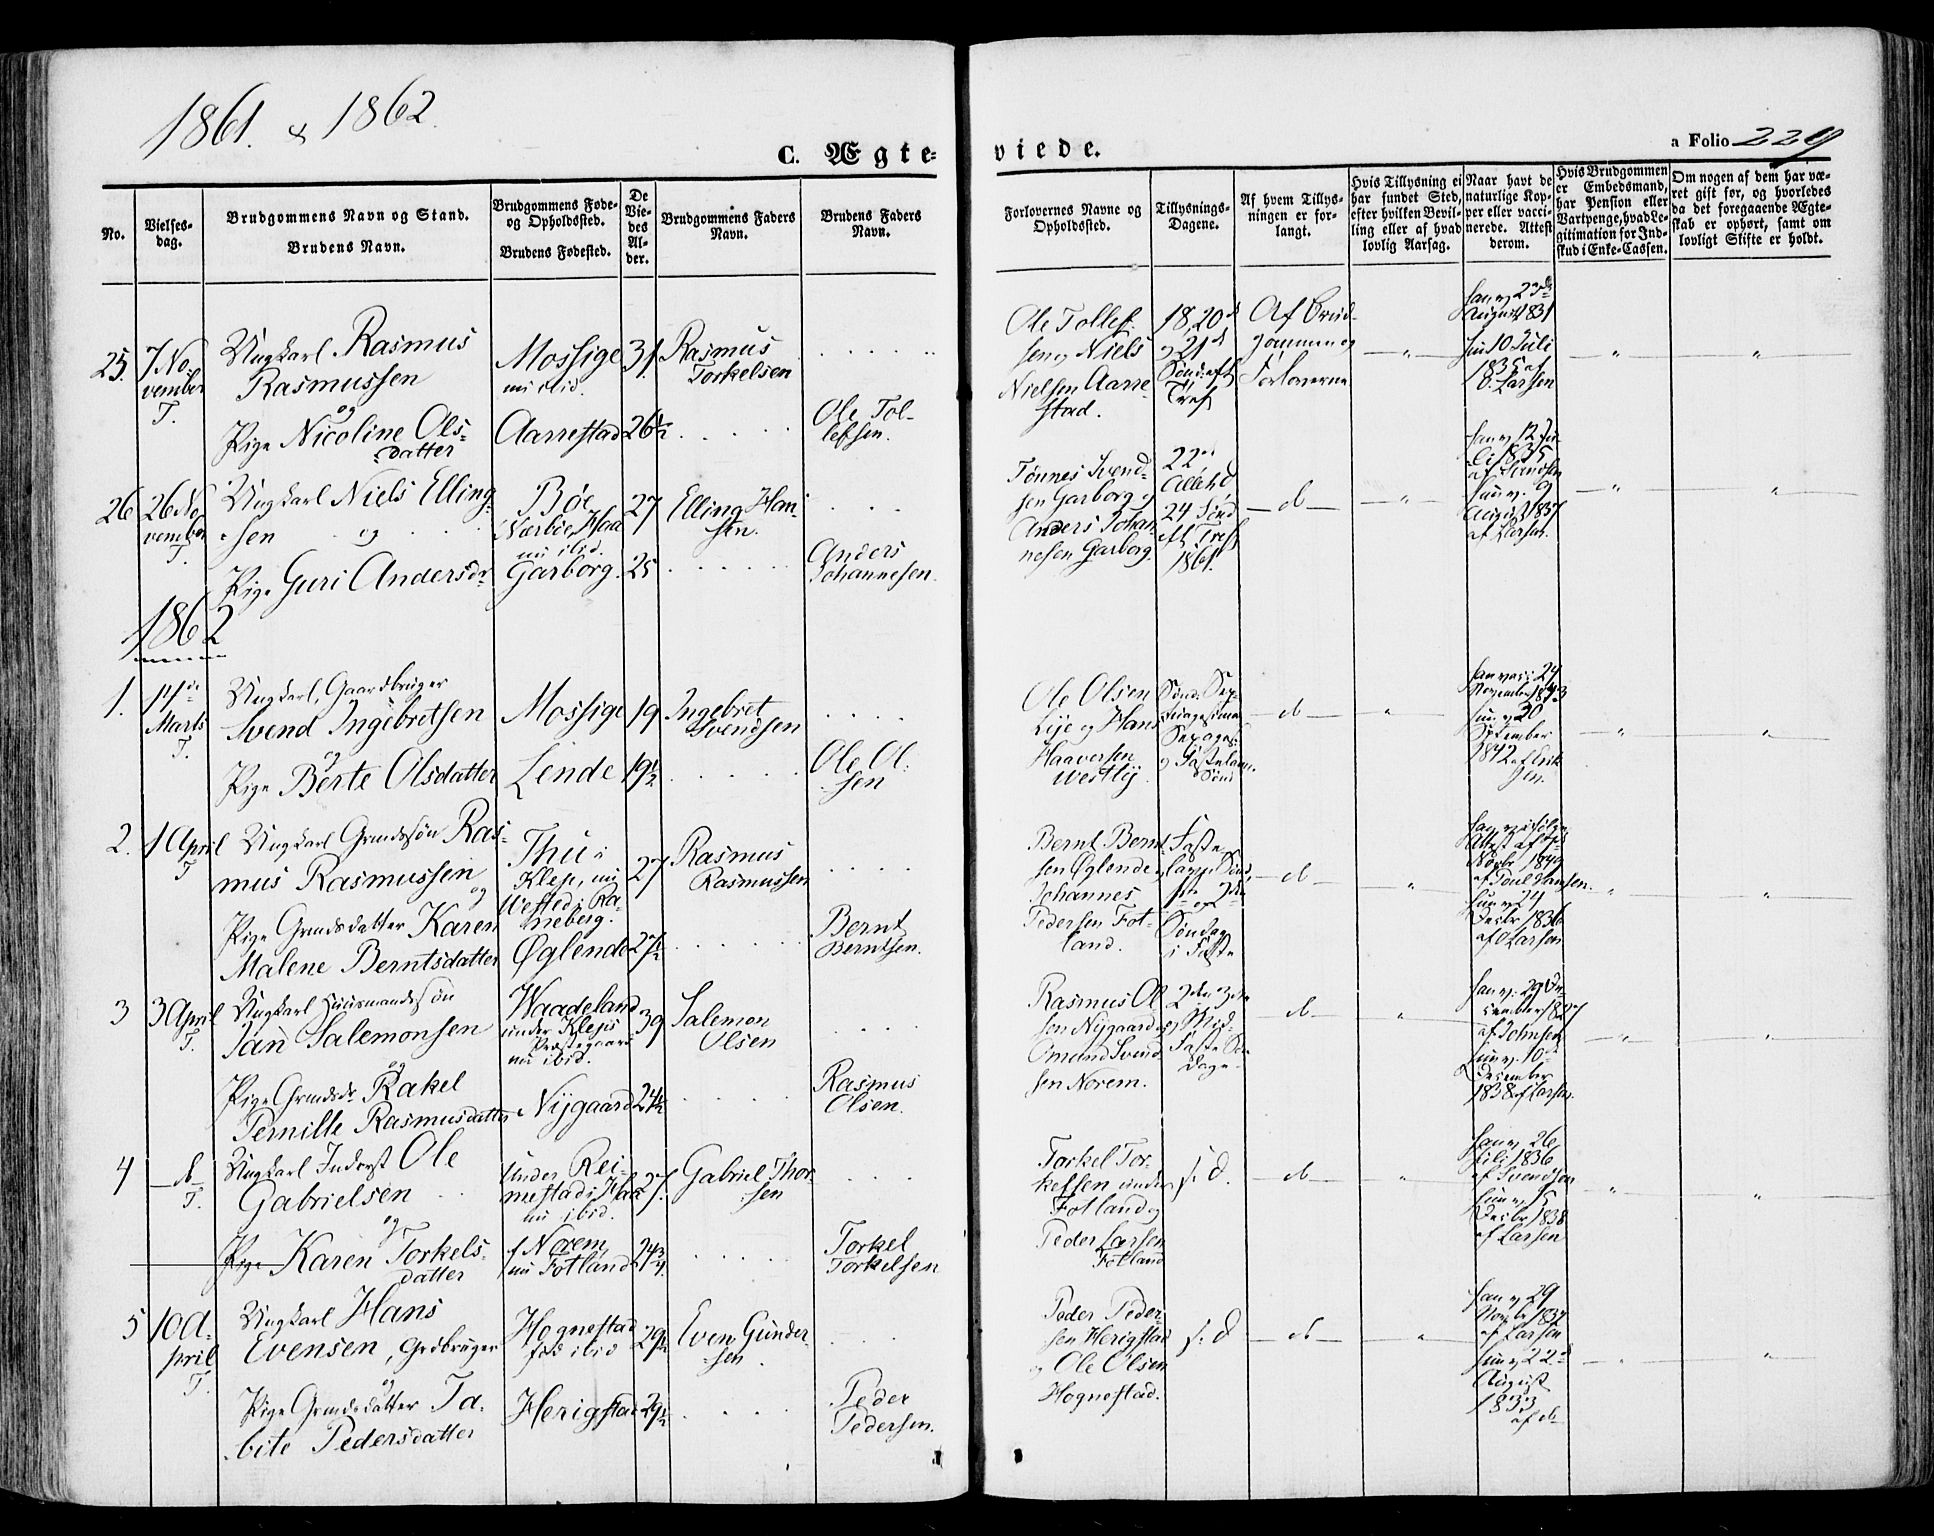 1861. & 1862.
C. Ægte-
viede.
a Folio 229
No.
Vielses-
dag.
Brudgommens Navn og Stand.
Brudens Navn.
Brudgommens Føde-
og Opholdssted.
Brudens Fødested.
De
Vie-
des
Al-
der.
Brudgommens Faders
Navn.
Brudens Faders
Navn.
Forlovernes Navne og
Opholdssted.
Tillysnings-
Dagene.
Af hvem Tillys-
ningen er for-
langt.
Hvis Tillysning ei
har fundet Sted,
efter hvilken Bevil-
ling eller af hvad
lovlig Aarsag.
Naar havt de
naturlige Kop-
per eller vacci-
nerede. Attest
derom.
Hvis Brudgommen
er Embedsmand,
har Pension eller
Vartpenge, hvad Le-
gitimation for Ind-
skud i Enke-Cassen.
Om nogen af dem har væ-
ret gift før, og hvorledes
da det foregaaende Ægte-
skab er ophørt, samt om
lovligt Skifte er holdt.
25.
7 No-
vember
T.
Ungkarl Rasmus
Rasmussen
og
Pige Nicoline Ols-
datter
Mossige
nu ibid.
Aarrestad
31.
26½
Rasmus
Torkelsen
Ole Tol-
lefsen.
Ole Tollef-
sen og Niels
Nielsen Aarre-
stad.
18, 20de
og 21de
Sønd: eft
Tref
Af Brud-
gommen og
Forloverne
Han v. 23de
August 1831
Hun 10 Juli
1835 af
O. Larsen
26
26 No-
vember
T.
Ungkarl Niels Elling-
sen og
Pige Guri Andersdr
Bøe
Nærbøe, Haa
nu ibid.
Garborg.
27
25
Elling Han-
sen.
Anders
Johannesen.
Tønnes Svend-
sen Garborg og
Anders Johan-
nesen Garborg.
22de
24 Sønd
eft. Tref
1861.
do
Han v. 12 Ju-
li 1835
af Svendsen
Hun v. 9
August 1837
af Larsen.
1862
1.
Marts
T.
Ungkarl, Gaardbruger
Svend Ingebretsen
og
Pige Berte Olsdatter
Mossige
Lende
19
19½
Ingebret
Svendsen
Ole Ol-
sen
Ole Olsen
Lije og Hans
Haaversen
Westlij.
Sønd: Sep-
tuagesima
Sexages:
og Fastelavn
Sønd
do
Han vac: 24
November 1843
Hun v. 20
September
1842
2.
1 April
T
Ungkarl Grmdssøn Ras-
mus Rasmussen
og
Pige Grmdsdatter Karen
Malene Berntsdatter
Thu i
Klep, nu
Wested i Ra-
neberg.
Øglende
27
27½
Rasmus
Rasmussen
Bernt
Berntsen.
Bernt Bernt-
sen Øglende og
Johannes
Pedersen Fot-
land.
Faste-
lavns Sønd,
1ste og 2den
Søndag
i Faste
do
Han v. ifølge
Attest af
Novbr 1849
af Poul Hansen.
Hun v. 24
Decbr 1836
af O Larsen
3
3 April
T.
Ungkarl Huusmandssøn
Jan Salemonsen
og
Pige Grmdsdr Rakel
Pernille Rasmusdatter
Waadeland
under Kleps
Præstegaard
nu ibid.
Nijgaard
39
24½
Salemon
Olsen
Rasmus
Olsen.
Rasmus Ol-
sen Nijgaard og
Omund Svend-
sen Norem.
2den 3die
og Mid-
Faste Søn-
dage
do
Han v. 29 De-
cember 1827
af Johnsen
Hun v. 10de
December
1838 af Larsen.
4
do
T.
Ungkarl Inderst Ole
Gabrielsen
og
Pige Karen Torkels-
datter
Under Rei-
mestad i Haa
nu ibid.
f Norem,
nu Fotland
27.
24¾
Gabriel Thor-
sen
Torkel
Torkelsen
Torkel Tor-
kelsen under
Fotland og
Peder Larsen
Fotland
s: d.
do
Han v. 26
Juli 1836
af Svendsen
Hun v. 5
Decbr 1838
af Larsen
5
10 A-
pril
T.
Ungkarl Hans
Evensen, Grdbruger
og
Pige Grmdsdatter Ta-
bite Pedersdatter
Hognestad
fød ibid
Herigstad
29½
29½
Even Gunder-
sen
Peder
Pedersen.
Peder Peder-
sen Herigstad
og Ole Olsen
Hognestad.
s: d
do
Han v. 29
Novbr 1837
af Larsen
Hun v 22de
August
1833
af do